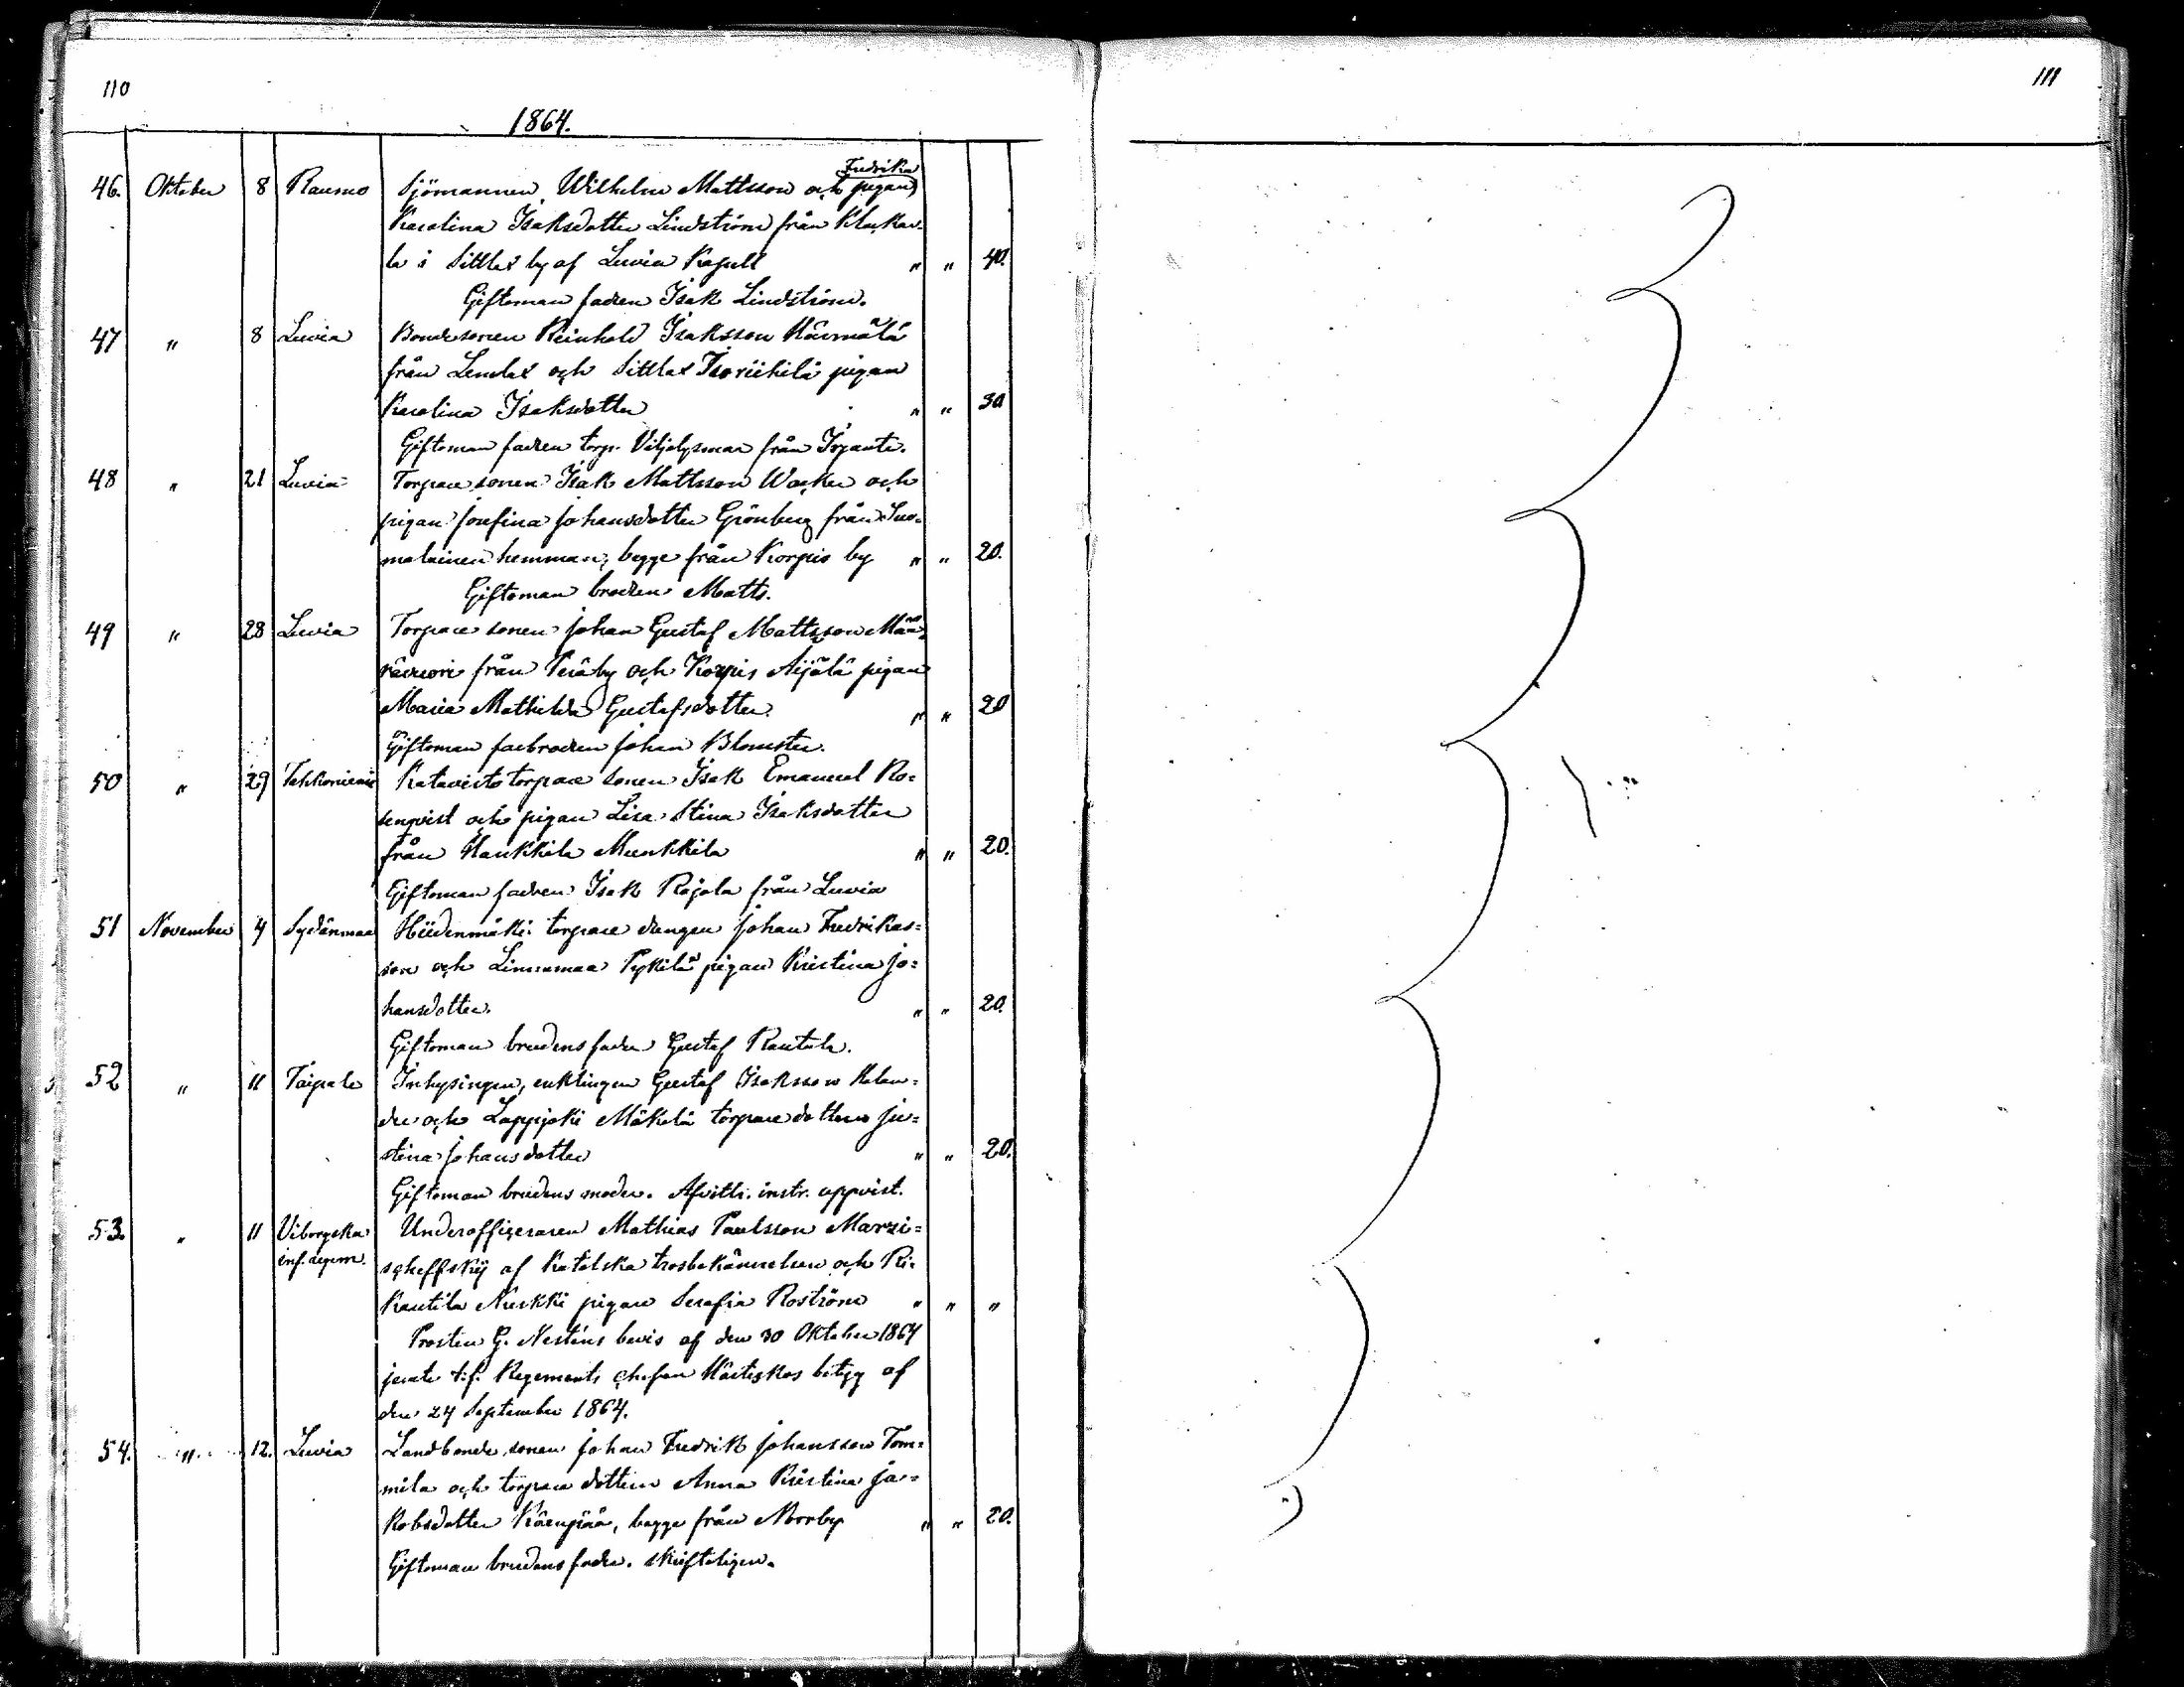 110
111
1864.
Fredrika
46. Oktober 8 Raumo Sjömannen Wilhelm Mattsson och pigan
Karolina Isaksdotter Lindström från Klockar-
la i Sittlax by af Luvia Kapell " " 40.
Giftoman fadren Isak Lindström.
47 " 8 Luvia Bondesonen Reinhold Isaksson
från Lemlax och Sittlax Isoriihilä pigan
Karolina Isaksdotter " " 30
Giftoman fadren torp. från
48 " 21 Luvia Torparesonen Isak Mattsson Wacker och
pigan Josefina Johansdotter Grönberg från Suo-
malainen hemman, begge från Korpis by " " 20.
Giftoman brodren Matts.
49 " 28 Luvia Torpare sonen Johan Gustaf Mattsson Män-
från Peräby och Korpis Äijälä pigan
Maria Mathilda Gustafsdotter. " " 20
Giftoman farbrodren Johan Blomster.
50 " 29 Katavisto torpare sonen Isak Emanuel Ro-
senqvist och pigan Lisa Stina Isaksdotter
från Hankkila Munkkila " " 20.
Giftoman fadren Isak Rajala från Luvia
51 November 4 Sydänmaa Hiidenmäki torpare drängen Johan Fredriks-
son och Linnamaa Pykilä pigan Kristina Jo-
hansdotter. " " 20.
Giftoman brudens fader Gustaf Rautala.
52 " 11 Taipale Inhysingen, enklingen Gustaf Isaksson Kalan-
der och Lappijoki Mäkelä torpare dottren Ju-
stina Johansdotter " " 20.
Giftoman brudens moder. Afvittr. instr. uppvist.
53. " 11 Viborgska Underofficeraren Mathias Paulsson Marzi-
inf. regem. scheffskij af Katolska trosbekännelsen och Ri-
kantila Nurkki pigan Serafia Roström " " "
Prosten G. Nesténs bevis af den 30 Oktober 1864
jemte t.f. Regements chefen betyg af
den 24 September 1864.
54. " 12. Luvia Landbonde sonen Johan Fredrik Johansson Tom-
mila och torpare dottren Anna Kristina Ja-
kobsdotter Kärnpää, begge från Norrby " " 20.
Giftoman brudens fader. skrifteligen.